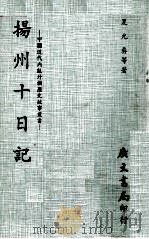 王秀楚等著
—中國近代內亂外禍歷史故事叢書—
揚州十日記
廣文書局印行